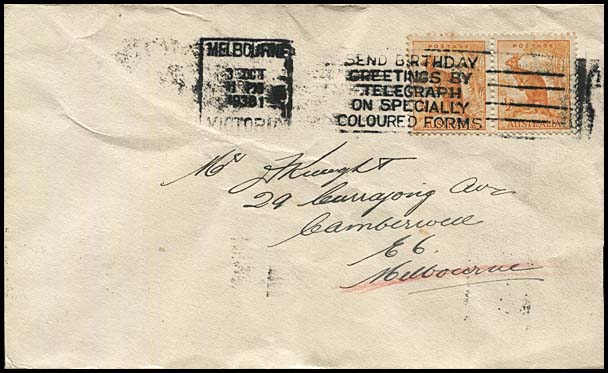 MELBOURNE
3 OCT
1938
VICTORIA
SEND BIRTHDAY
GREETINGS BY
TELEGRAPH
ON SPECIALLY
COLOURED FORMS
POSTAGE POSTAGE
AUSTRALIA
Mr J Knight
29 Currajong Av
Camberwell
E6.
Melbourne